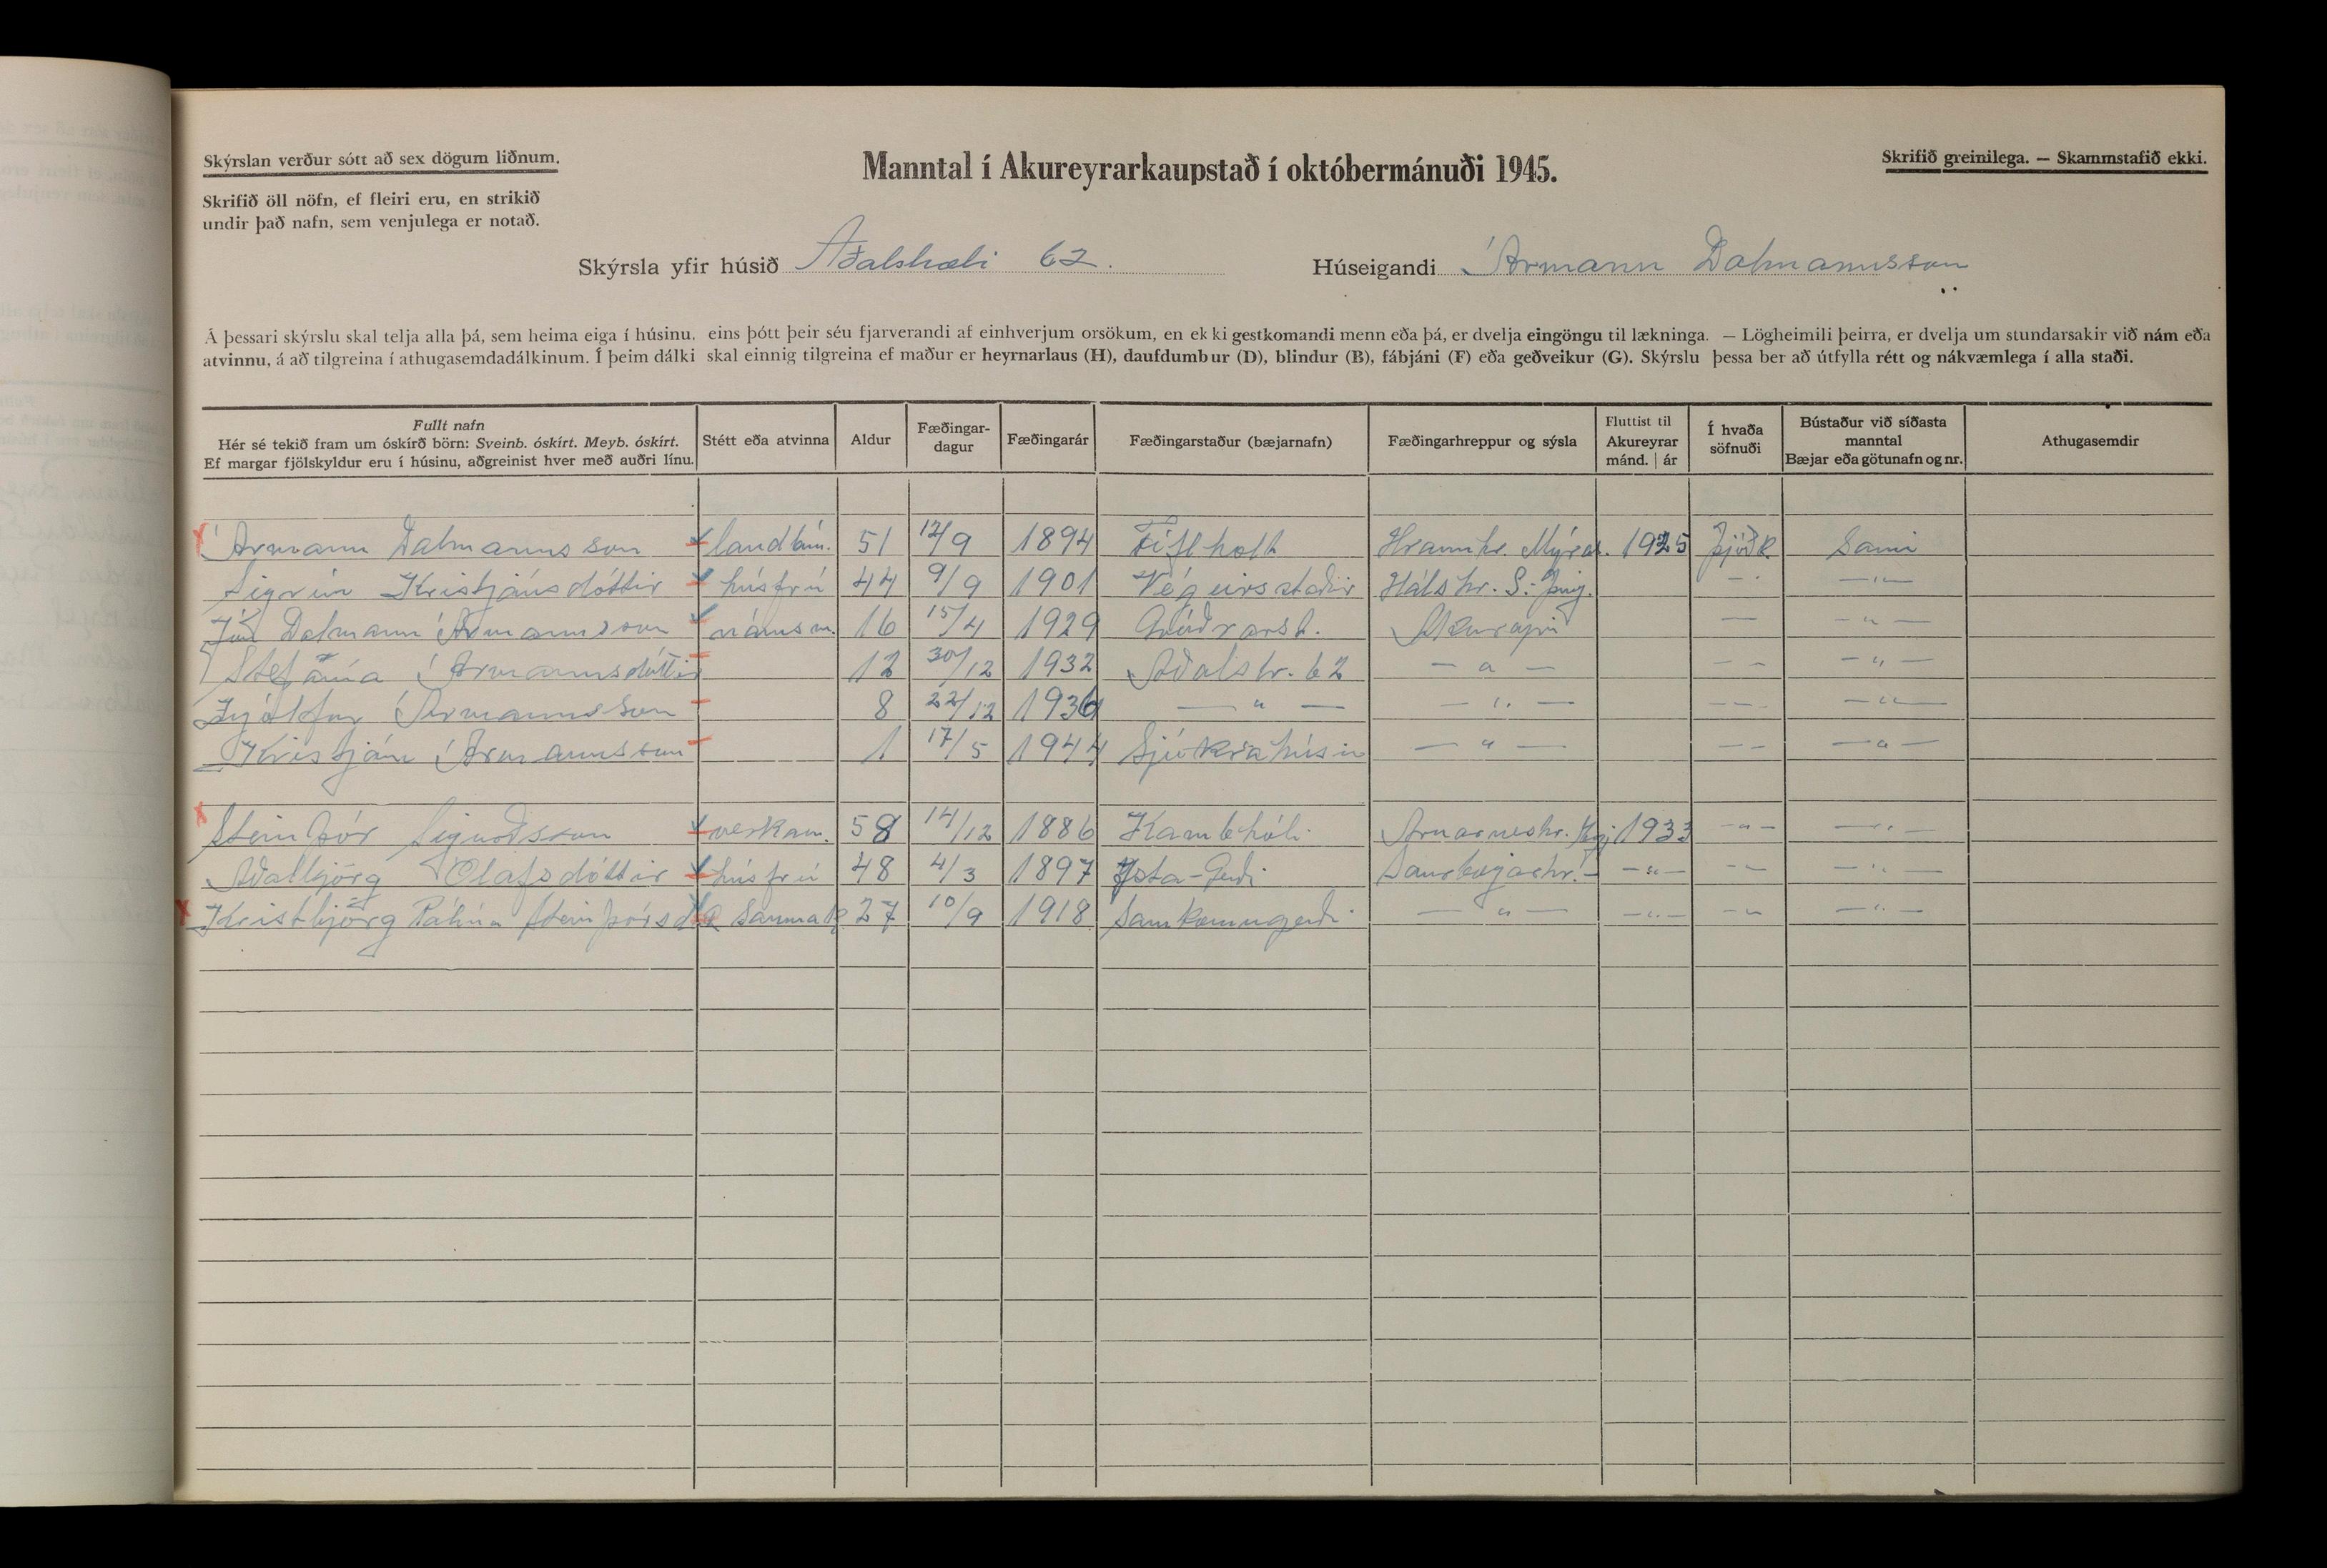 Skýrslan verður sótt að sex dögum liðnum.
Skrifið öll nöfn, ef fleiri eru, en strikið
undir það nafn, sem venjulega er notað.
Manntal í Akureyrarkaupstað í októbermánuði 1945.
Skrifið greinilega. — Skammstafið ekki.
Skýrsla yfir húsið Aðalstræti 62. Húseigandi Ármann Dalmannsson
Á þessari skýrslu skal telja alla þá, sem heima eiga í húsinu, eins þótt þeir séu fjarverandi af einhverjum orsökum, en ekki gestkomandi menn eða þá, er dvelja eingöngu til lækninga. — Lögheimili þeirra, er dvelja um stundarsakir við nám eða
atvinnu, á að tilgreina í athugasemdadálkinum. Í þeim dálki skal einnig tilgreina ef maður er heyrnarlaus (H), daufdumbur (D), blindur (B), fábjáni (F) eða geðveikur (G). Skýrslu þessa ber að útfylla rétt og nákvæmlega í alla staði.
Fullt nafn
Hér sé tekið fram um óskírð börn: Sveinb. óskírt. Meyb. óskírt.
Ef margar fjölskyldur eru í húsinu, aðgreinist hver með auðri línu.
Stétt eða atvinna
Aldur
Fæðingar-
dagur
Fæðingarár
Fæðingarstaður (bæjarnafn)
Fæðingarhreppur og sýsla
Fluttist til
Akureyrar
mánd. | ár
Í hvaða
söfnuði
Bústaður við síðasta
manntal
Bæjar eða götunafn og nr.
Athugasemdir
Ármann Dalmannsson landbún. 51 12/9 1894 Fíflholt Hraunhr. Mýras. 1925 Þjóðk. Sami
Sigrún Kristjánsdóttir húsfrú 44 9/9 1901 Végeirsstaðir Hálshr. S.-Þing. — " —
Jón Dalmann Ármannsson námsm. 16 15/4 1929 Gróðrarst. Akureyri — — " —
Stefanía Ármannsdóttir 12 30/12 1932 Aðalstr. 62 — " — — — — " —
Ármannsson 8 22/12 1936 — " — — " — — — — " —
Kristján Ármannsson 1 17/5 1944 Sjúkrahúsin — " — — — — " —
Steinþór Sigurðsson verkam. 58 14/12 1886 Kambhóli Arnarneshr. 1933 — " — — " —
Aðalbjörg Ólafsdóttir húsfrú 48 4/3 1897 Ysta-Gerði Saurbæjarhr. — " — — " — — " —
Kristbjörg Pálína Steinþórsd. saumak. 27 10/9 1918 Samkomugerði — " — — " — — " — — " —